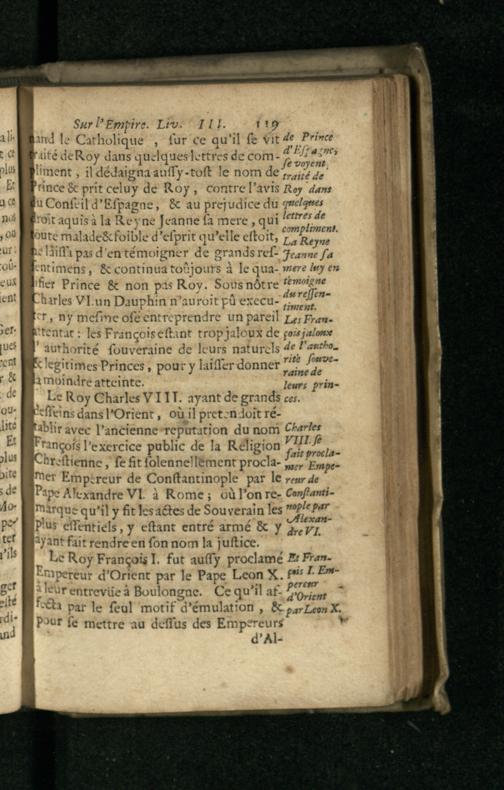 Sur l'Empire. Liv. III. 119
nand le Catholique , sur ce qu'il se vit
traité de Roy dans quelques lettres de com-
pliment , il dédaigna aussy-tost le nom de
Prince & prit celuy de Roy , contre l'avis
du Conseil d'Espagne, & au prejudice du
droit aquis à la Reyne Jeanne sa mere , qui
toute malade & foible d'esprit qu'elle estoit,
ne laissa pas d'en témoigner de grands res-
sentimens , & continua toûjours à le qua-
lifier Prince & non pas Roy. Sous nôtre
Charles VI. un Dauphin n'auroit pû execu-
ter, ny mesme osé entreprendre un pareil
attentat : les François estant trop jaloux de
l' authorité souveraine de leurs naturels
& legitimes Princes, pour y laisser donner
la moindre atteinte.
Le Roy Charles VIII. ayant de grands
desseins dans l'Orient , où il pretendoit ré-
tablir avec l'ancienne reputation du nom
François l'exercice public de la Religion
Chrestienne, se fit solennellement procla-
mer Empereur de Constantinople par le
Pape Alexandre VI. à Rome ; où l'on re-
marque qu'il y fit les actes de Souverain les
plus essentiels, y estant entré armé & y
ayant fait rendre en son nom la justice.
Le Roy François I. fut aussy proclamé
Empereur d'Orient par le Pape Leon X.
à leur entrevüe à Boulongne. Ce qu'il af-
fecta par le seul motif d'émulation , &
pour se mettre au dessus des Empereurs
d'Al-
de Prince
d'Espagne,
se voyent
traité de
Roy dans
quelques
lettres de
compliment.
La Reyne
Jeanne sa
mere luy en
témoigne
du ressen-
timent.
Les Fran-
çois jaloux
de l'autho-
rité souve-
raine de
leurs prin-
ces.
Charles
VIII. se
fait procla-
mer Empe-
reur de
Constanti-
nople par
Alexan-
dre VI.
Et Fran-
çois I. Em-
pereur
d'Orient
par Leon X.